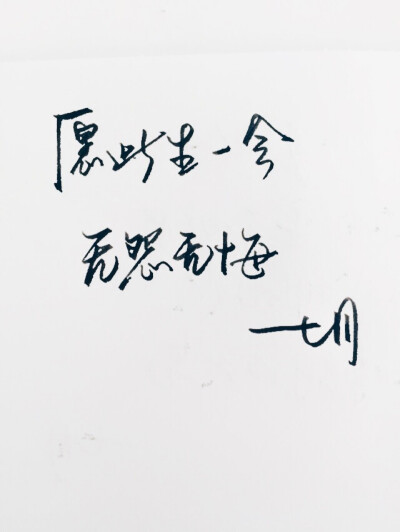 愿此生一会
无怨无悔
—七月